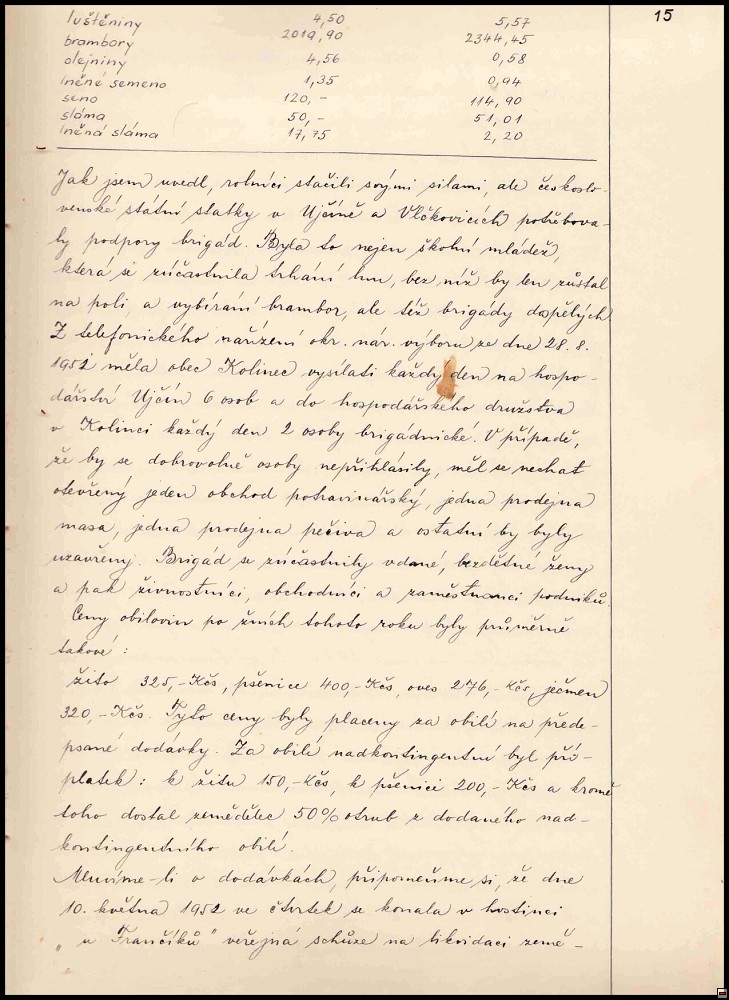 15
luštěniny 4,50 5,57
brambory 2019,90 2344,45
olejniny 4,56 0,58
lněné semeno 1,35 0,94
seno 120,- 114,90
sláma 50,- 51,01
lněná sláma 17,75 2,20
Jak jsem uvedl, rolníci stačili svými silami, ale českoslo-
venské státní statky v Ujčíně a Vlčkovicích potřebova-
ly podpory brigád. Byla to nejen školní mládež,
která se zúčastnila trhání lnu, bez níž by len zůstal
na poli, a vybírání brambor, ale též brigády dospělých.
Z telefonického nařízení okr. nár. výboru ze dne 28. 8.
1952 měla obec Kolinec vysílati každý den na hospo-
dářství Ujčín 6 osob a do hospodářského družstva
v Kolinci každý den 2 osoby brigádnické. V případě,
že by se dobrovolně osoby nepřihlásily, měl se nechat
otevřený jeden obchod potravinářský, jedna prodejna
masa, jedna prodejna pečiva a ostatní by byly
uzavřeny. Brigád se zúčastnily vdané, bezdětné ženy
a pak živnostníci, obchodníci a zaměstnanci podniků.
Ceny obilovin po žních tohoto roku byly průměrně
takové:
žito 325,-Kčs, pšenice 400,-Kčs, oves 276,-Kčs, ječmen
320,-Kčs. Tyto ceny byly placeny za obilí na přede-
psané dodávky. Za obilí nadkontingentní byl pří-
platek: k žitu 150,-Kčs, k pšenici 200,-Kčs a kromě
toho dostal zemědělec 50% otrub z dodaného nad-
kontingentního obilí.
Mluvíme-li o dodávkách, připomeňme si, že dne
10. května 1952 ve čtvrtek se konala v hostinci
„u Frančíků" veřejná schůze na likvidaci země-